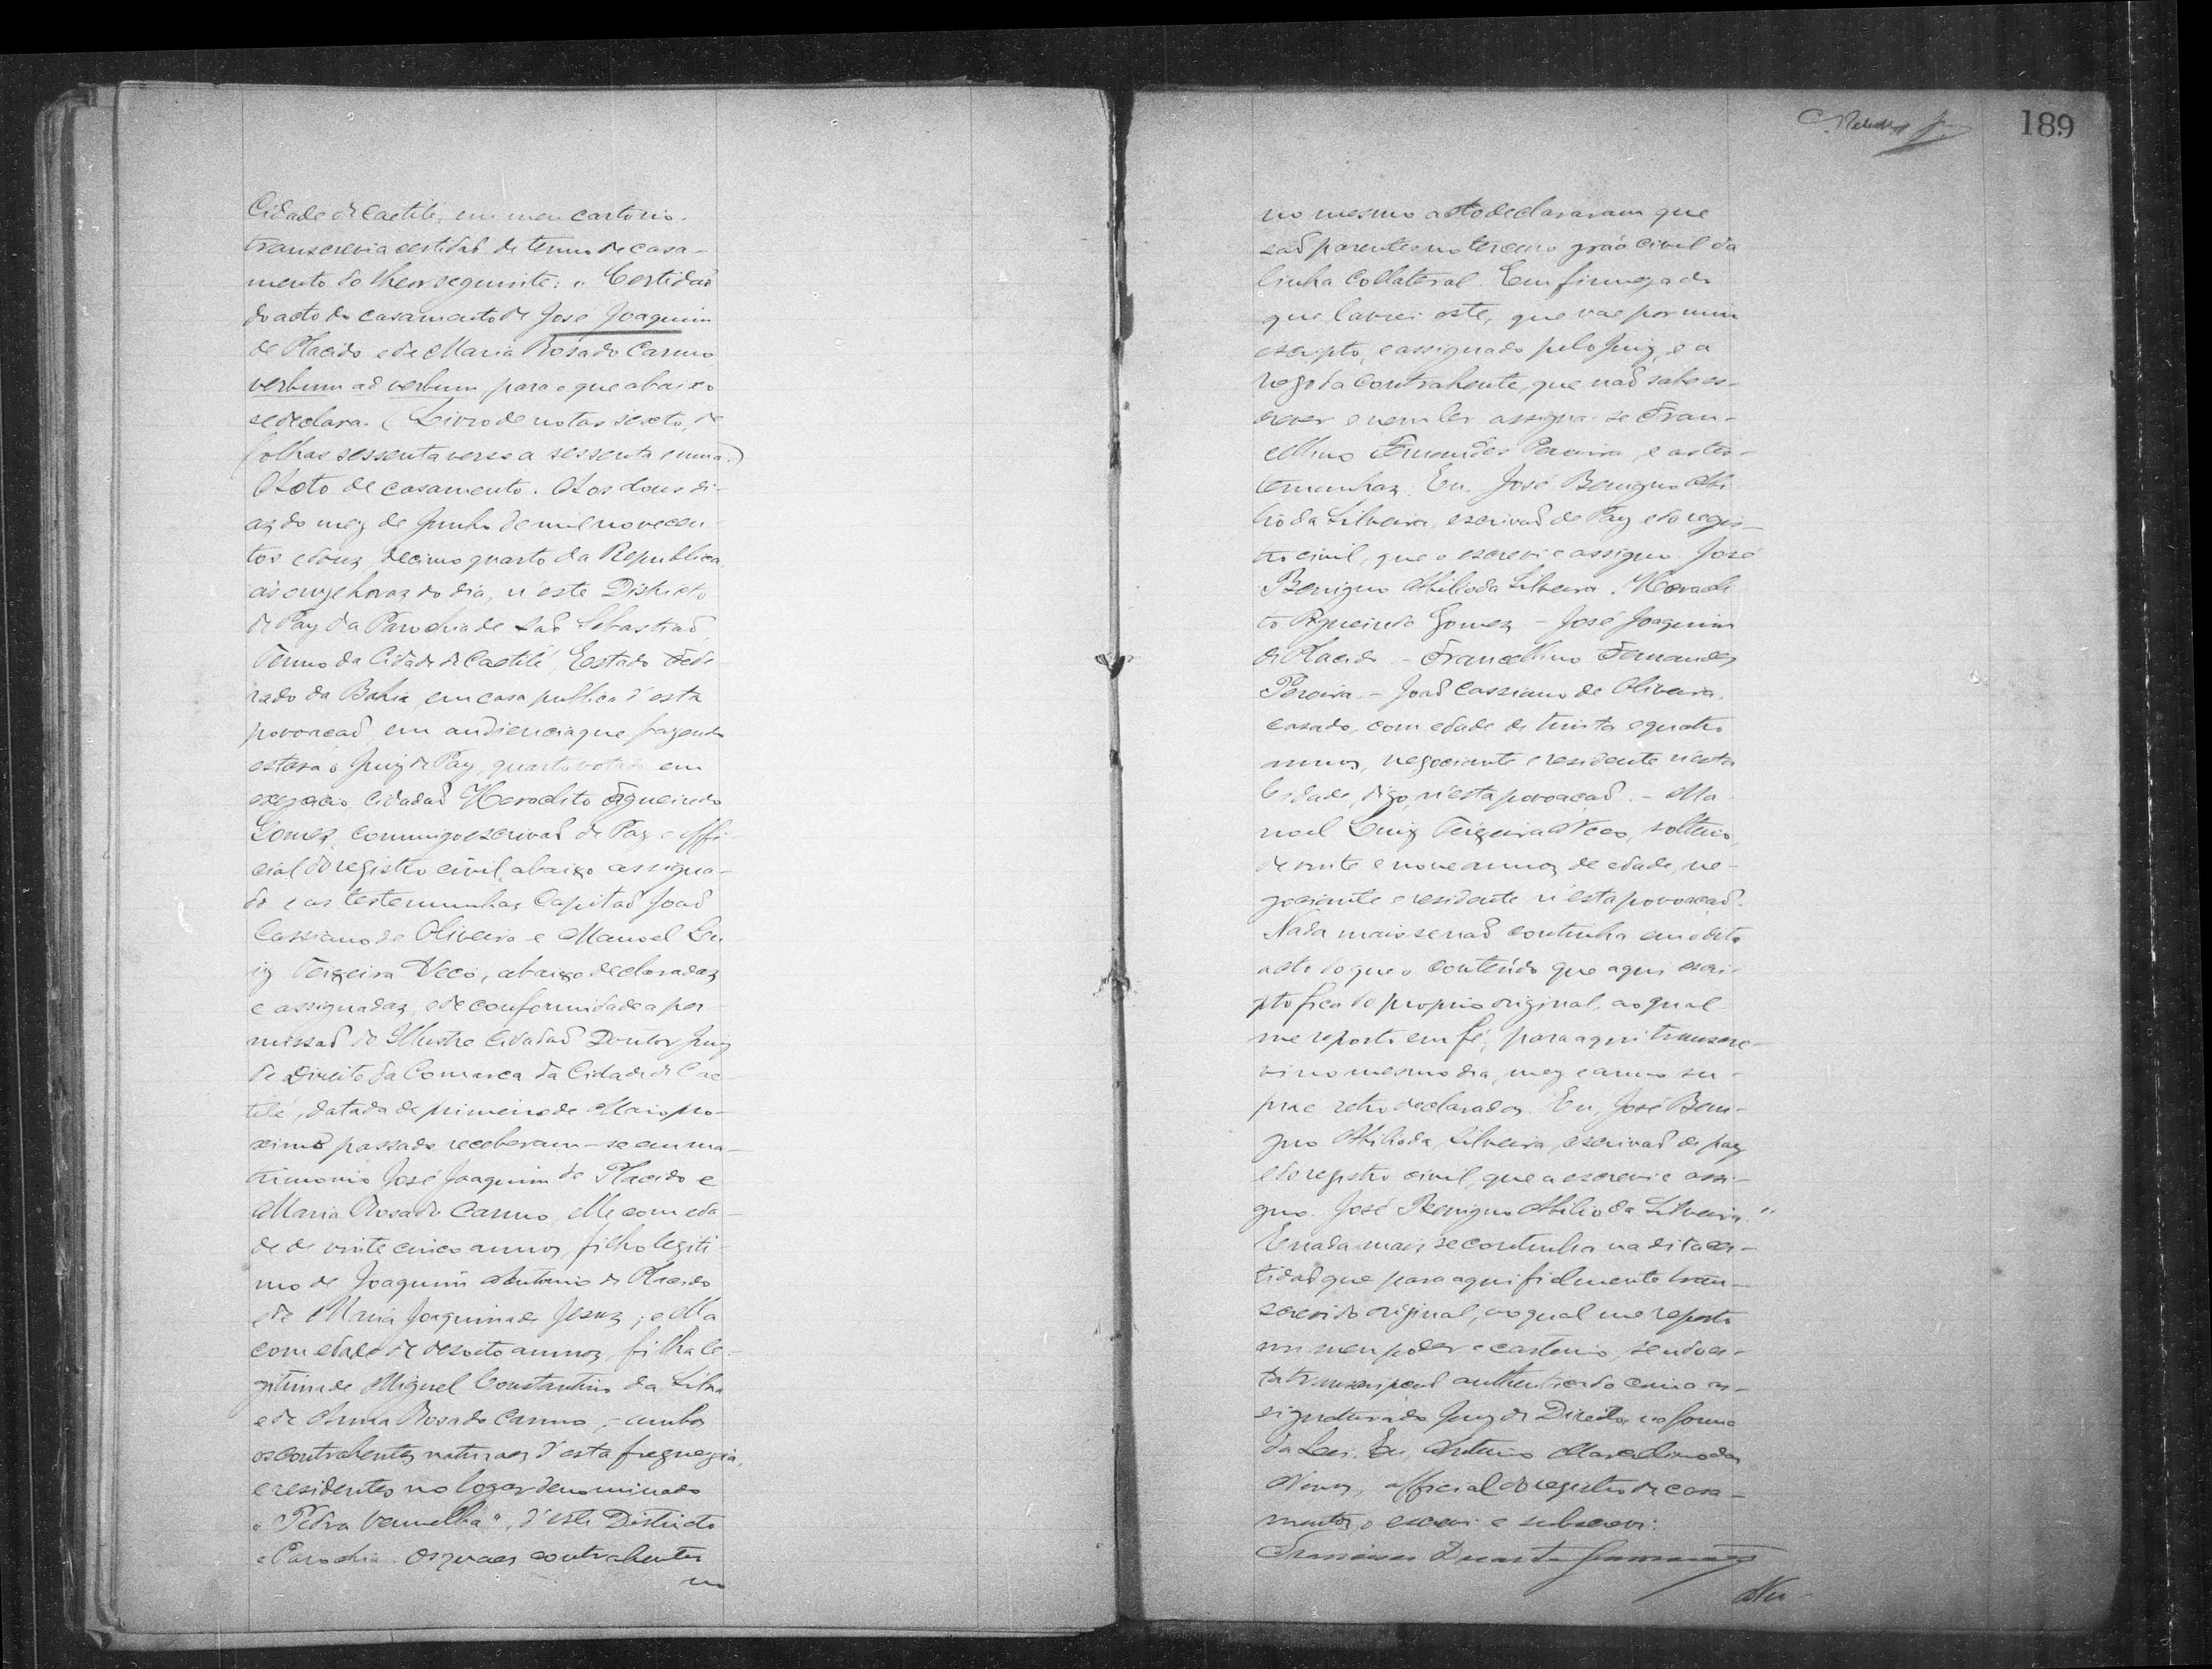 Cidade de Caetité, em meu cartorio.
transcrevi a certidaõ de termo de casa-
mento do theor seguinte: "Certidaõ
do acto do casamento de José Joaquim
de Placido e de Maria Rosa do Carmo
verbum ad verbum para o que abaixo
se declara. (Livro de notas sexto, de
folhas sessenta verso a sessenta e uma.)
Acto de casamento. Aos dous di-
as do mez de Junho de mil novecen-
tos e douz, decimo quarto da Republica,
ás onze horas do dia, n'este Districto
de Paz da Parochia de Saõ Sebastiaõ,
Termo da Cidade de Caetité, Estado Fede-
rado da Bahia, em casa publica d'esta
povoaçaõ em audiencia que fazendo
estava o Juiz de Paz quarto votado em
exercicio, Cidadaõ Heraclito Figueiredo
Gomes, commigo escrivaõ de Paz e offi-
cial do registro civil, abaixo assigna-
do e as testemunhas Capitaõ Joaõ
Cassiano de Oliveira e Manoel Lu-
iz Teixeira Veco, abaixo declaradaz
e assignadaz, e de conformidade a per-
missaõ do Illustre Cidadaõ Doutor Juiz
de Direito da Comarca da Cidade de Cae-
tité, datada de primeiro de Maio pro-
ximo passado receberam-se em ma-
trimonio José Joaquim de Placido e
Maria Rosa do Carmo, elle com eda-
de de vinte cinco annos, filho legiti-
mo de Joaquim Antonio de Placido
e de Maria Joaquina de Jesuz; e ella
com edade de desoito annoz, filha le-
gitima de Miguel Constantino da Silva
e de Anna Rosa do Carmo, ambos
os contrahentes naturaes d'esta freguezia,
e residentes no logar denominado
"Pedra Vermelha", d'este Districto
e Parochia. Os quaes contrahentes
no
189
no mesmo acto declararam que
saõ parentes no terceiro gráo civil da
linha Collateral. Em firmeza do
que lavrei este, que vae por mim
escripto, e assignado pelo Juiz, e a
rogo da Contrahente, que naõ sabe es-
crever e nem ler assigna-se Fran-
cellino Fernandes Pereira, e as tes-
temunhaz. Eu, José Benigno Abi-
lio da Silveira, escrivaõ de Paz e do regis-
tro civil, que o escrevi e assigno. José
Benigno Abilio da Silveira. Heracli-
to Figueiredo Gomes - José Joaquim
de Placido. - Francellino Fernandes
Pereira. - Joaõ Cassiano de Oliveira,
casado, com edade de trinta e quatro
annos, negociante e residente n'esta
Cidade, digo, n'esta povoaçaõ. - Ma-
noel Luiz Teixeira Veco, solteiro,
de vinte e nove annos de edade, ne-
gociante e residente n'esta povoaçaõ.
Nada mais se naõ continha em o dito
acto do que o contéudo que aqui escri-
pto fica do proprio original, ao qual
me reporto em fé, para aqui transcre-
vi no mesmo dia, mez e anno su-
pra e retro declarados. Eu, José Beni-
gno Abilio da Silveira, escrivaõ de paz
e do registro civil, que a escrevi e assi-
gno. José Benigno Abilio da Silveira."
E nada mais se continha na dita cer-
tidaõ que para aqui fielmente tran-
screvi do original, ao qual me reporto
em meu poder e cartorio, sendo es-
ta transcripçaõ authenticada com a as-
signatura do Juiz de Direito, na forma
da Lei. Eu, Antonio Marcelino das
Neves, official do registro de casa-
mentos, o escrevi e subscrevi.
Francisco Duarte Guimarães